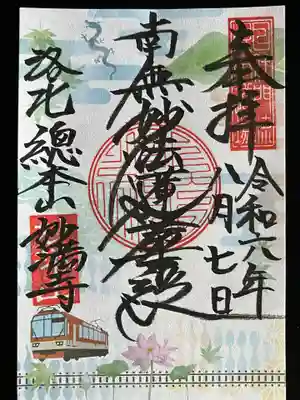 奉拝
令和六年
八月七日
南無妙法蓮華経
洛北總本山
妙満寺